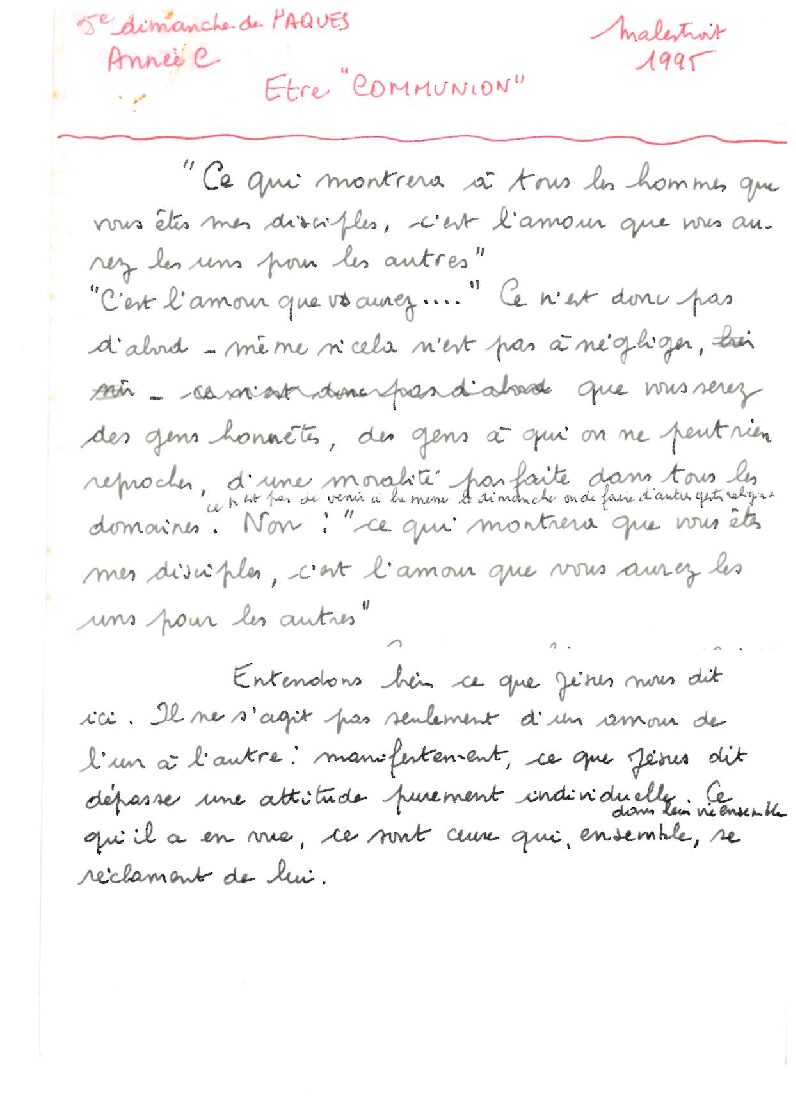 5e dimanche de PAQUES
Année C
Malestroit
1995
Etre "COMMUNION"
"Ce qui montrera à tous les hommes que
vous êtes mes disciples, c'est l'amour que vous au-
rez les uns pour les autres"
"C'est l'amour que vs aurez...." Ce n'est donc pas
d'abord - même si cela n'est pas à négliger,
- ce n'est donc pas d'abord que vous serez
des gens honnêtes, des gens à qui on ne peut rien
reprocher, d'une moralité parfaite dans tous les
ce n'est pas de venir à la messe le dimanche ou de faire d'autres gestes religieux
domaines. Non : "ce qui montrera que vous êtes
mes disciples, c'est l'amour que vous aurez les
uns pour les autres"
Entendons bien ce que Jésus nous dit
ici. Il ne s'agit pas seulement d'un amour de
l'un à l'autre : manifestement, ce que Jésus dit
dépasse une attitude purement individuelle. Ce
dans leur vie ensemble
qu'il a en vue, ce sont ceux qui, ensemble, se
réclament de lui.